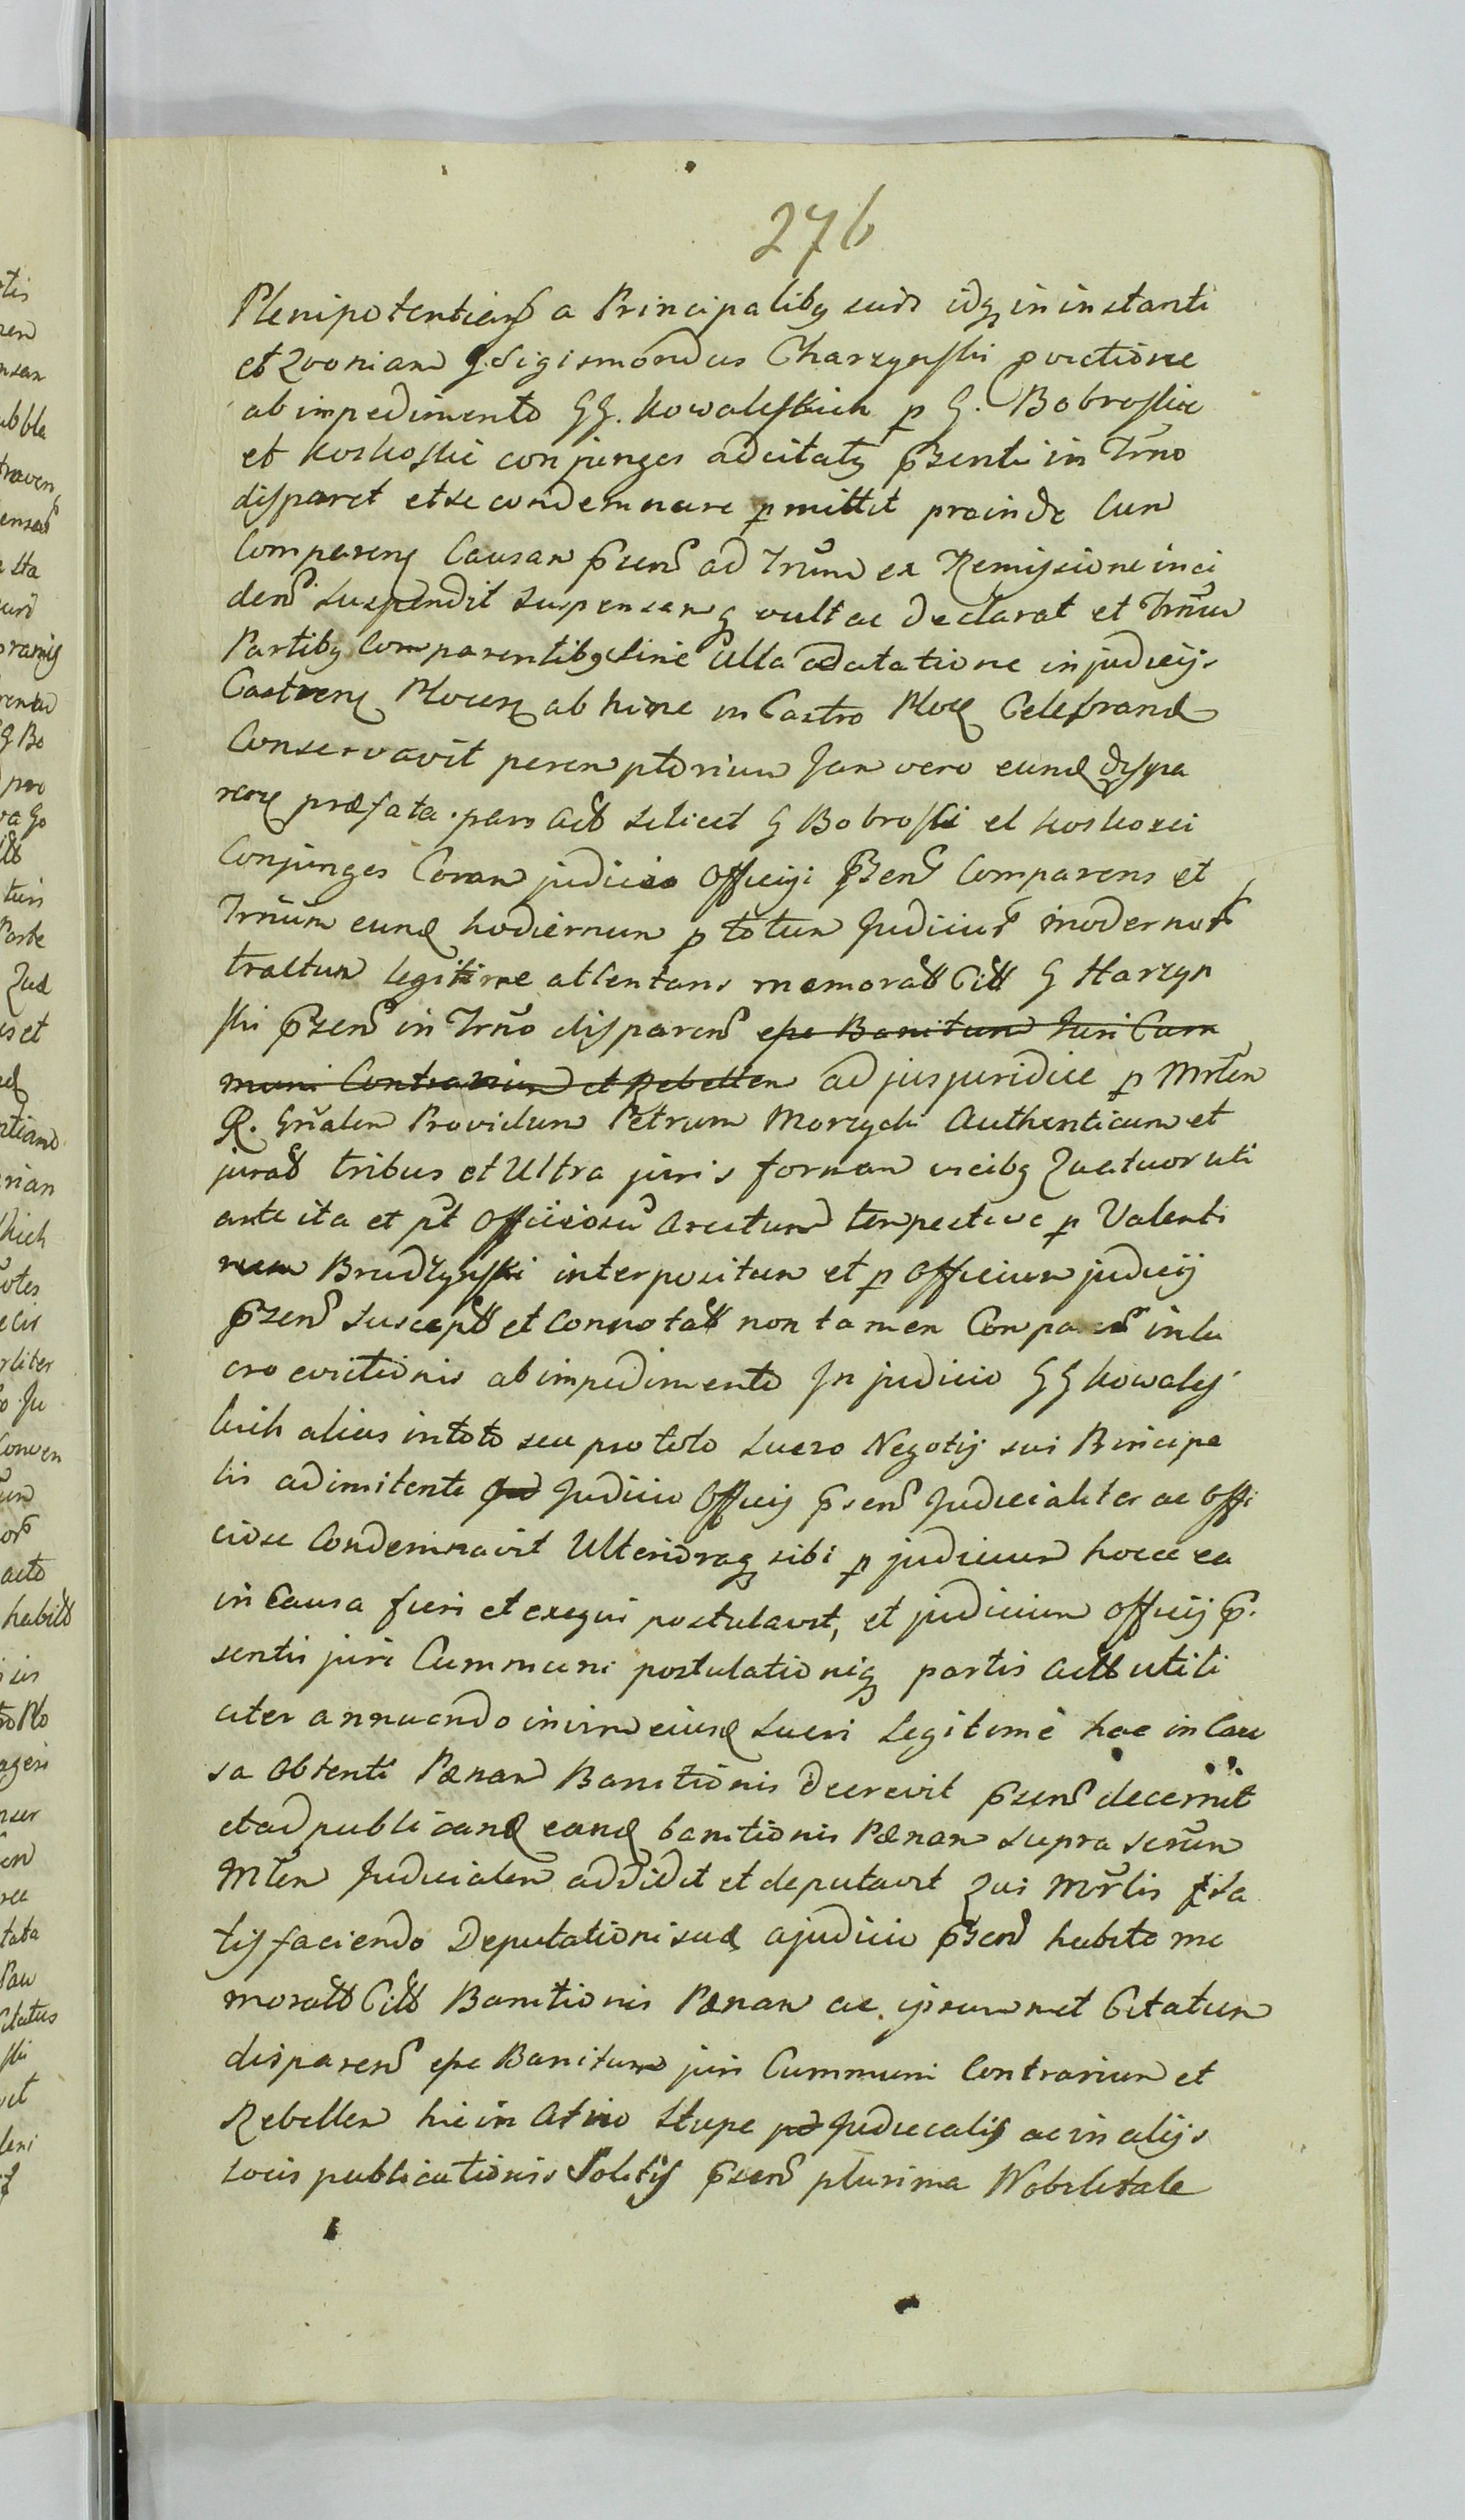 276
Plenipotentiarij a Principalibq suis idq in instanti
et Qvoniam G. Sigismondus Charzynski p evictione
ab impedimento GG. Kowalesskich p G. Bobroskie
et Koskoskie conjunges adcitatq pszenti in Trno
disparet et se condemnare pmittit proinde Cum
Comparenq Causam pszens ad Trnum ex Remissione inci
dens suspendit suspensamq vult ac declarat et Trnum
Partibq Comparentibq sine ulla adcitatione in judicijs
Castrenq Plocenq ab hinc in Castro Plocq Celebrand
Conservavit peremptorium Jam vero eund dispa
renq præfata pars Actt scilicet G Bobroski et Koskosci
Conjunges Coram judicio Officiji pszens Comparens et
Trnum eund hodiernum p totum Judiciors modernors
tractum legitime attentans memoratt Citt G Harzyn
ski pszens in Trno disparens esse Banitum Juri Cum
muni Contrarium et Rebellem ad jus juridice p Mrlem
R. Gnalem Providum Petrum Morzycki Authenticum et
juratt tribus et Ultra juris formam vicibq Quatuor uti
ante ita et pt Officiosu Arestum tempestive p Valenti
num Brudzynski interpositum et p Officium judicij
pszens susceptt et Connotatt non tamen Compares in lu
cro evictionis ab impedimento In judicio GG Kowales
kich alias in toto seu pro toto Lucro Negotij sui Principa
lis adimitenti Jud Judicio Officij pszens Judicialiter ac offi
ciose Condemnavit Ulterioraq sibi p judicium hocce ea
in Causa fieri et exequi postulavit, et judicium officij p
sentis juri Cummuni postulationiq partis Actt utili
citer annuendo in vim eiusd Lucri Legitime hac in Cau
sa Obtenti Pænam Banitionis decrevit pszens decernit
et ad publicand eand banitionis Pænam supra scrum
Mlem Judicialem addidit et deputavit Qui Mrlis sa
tisfaciendo Deputationi suæ a judicio pszens habitæ me
moratt Citt Banitionis Pænam ac ipsummet Citatum
disparens esse Banitum juri Cummuni Contrarium et
Rebellem hic in Atrio Stupæ jud Judicialis ac in alijs
locis publicationis Solitis pszens plurima Nobilitate